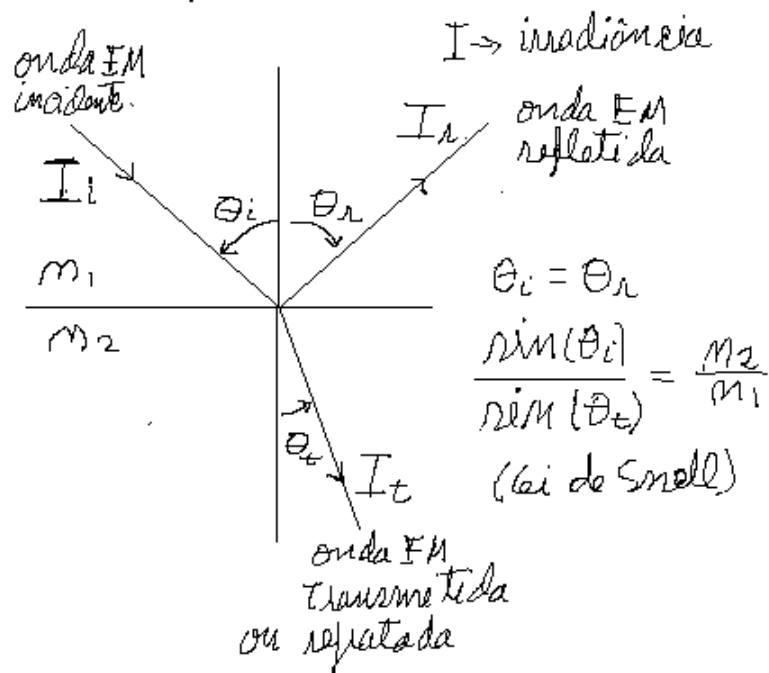 I → irradiância
onda EM
incidente.
I_i
θ_i
θ_r
I_r
onda EM
refletida
n_1
n_2
θ_i = θ_r
sin(θ_i)
sin(θ_t)
= n_2
n_1
(Lei de Snell)
θ_t
I_t
onda EM
transmetida
ou refratada